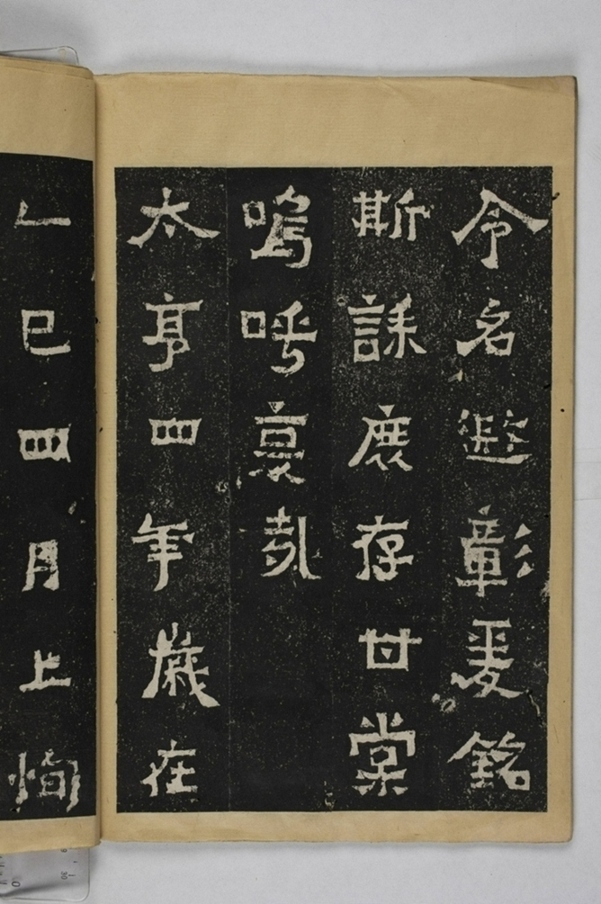 令名遐彰爰銘
斯誄庶存甘棠
嗚呼哀哉
太亨四年歲在
乙巳四月上恂